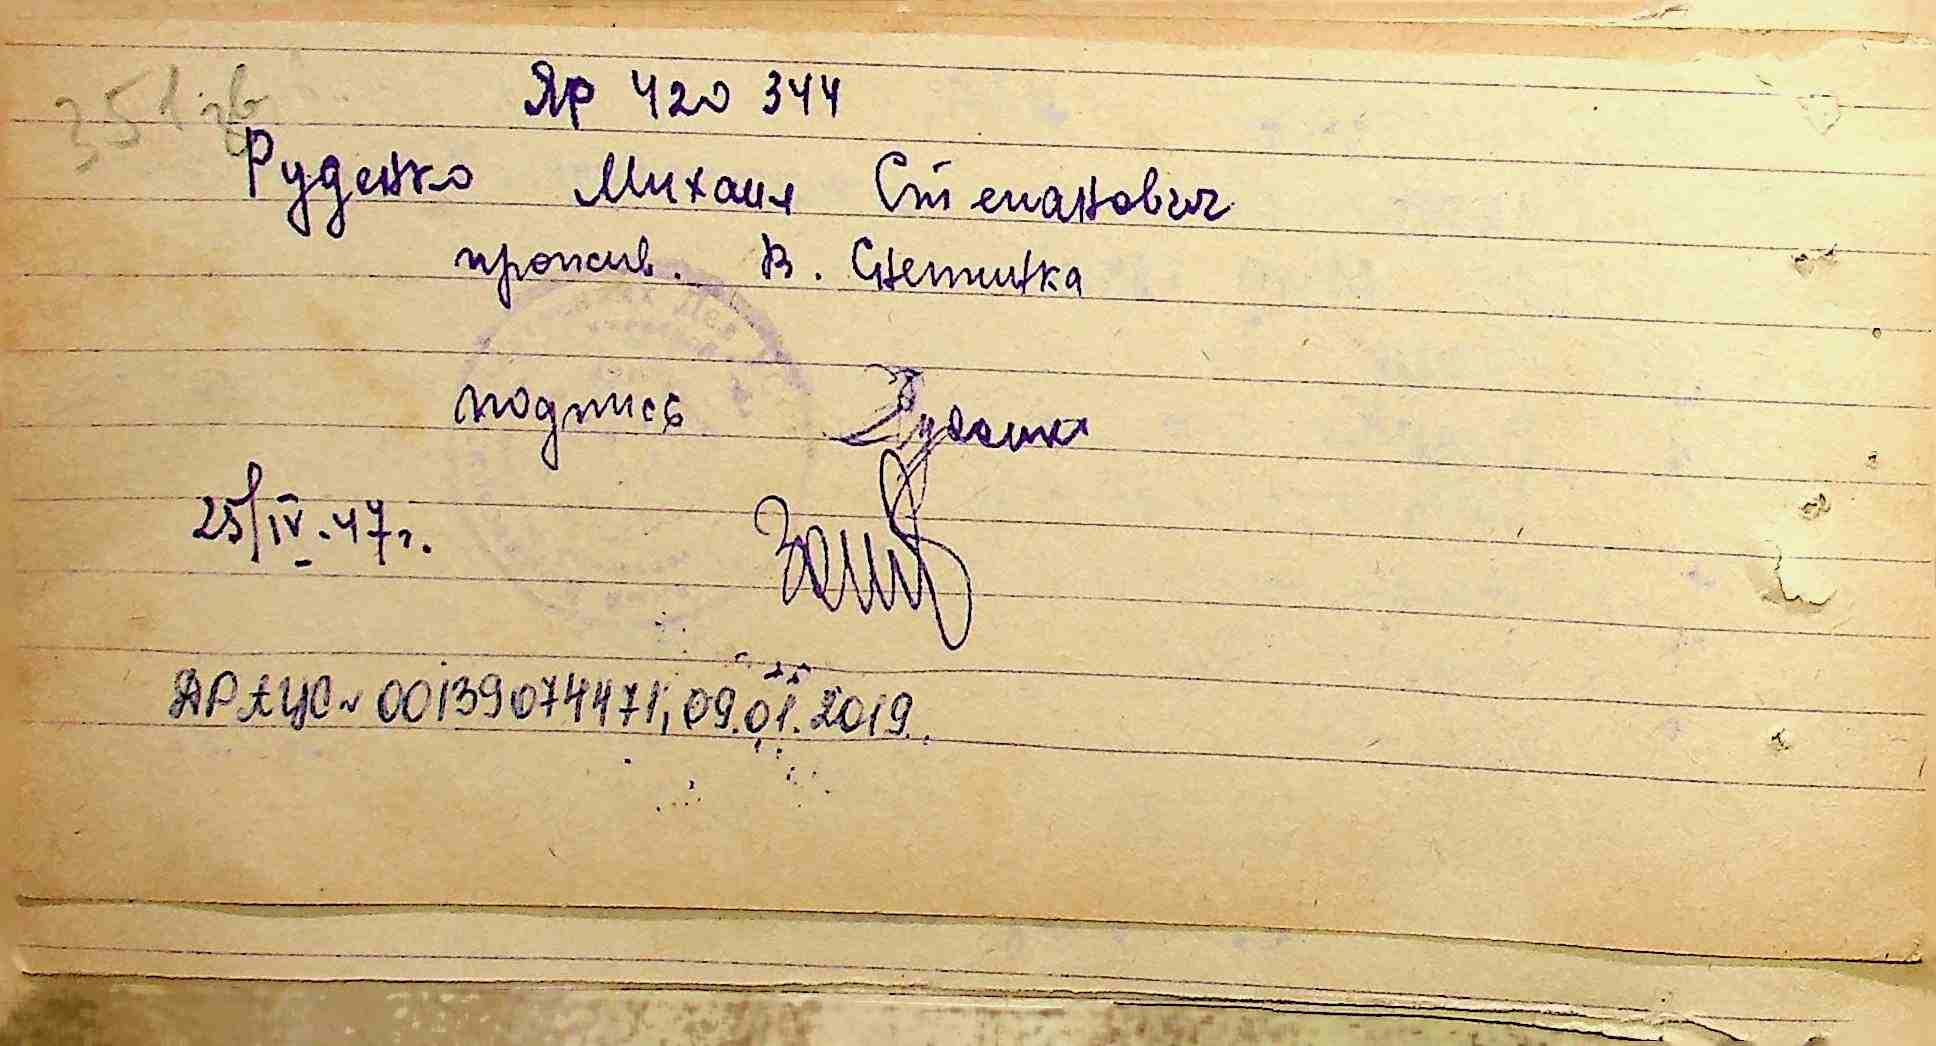 351 зв
ЯР 420 344
Руденко Михаил Степанович
прожив. В. Снетинка
подпись Руденко
25/IV-47г.
ДРАЦС ~ 00139074471, 09.01.2019.